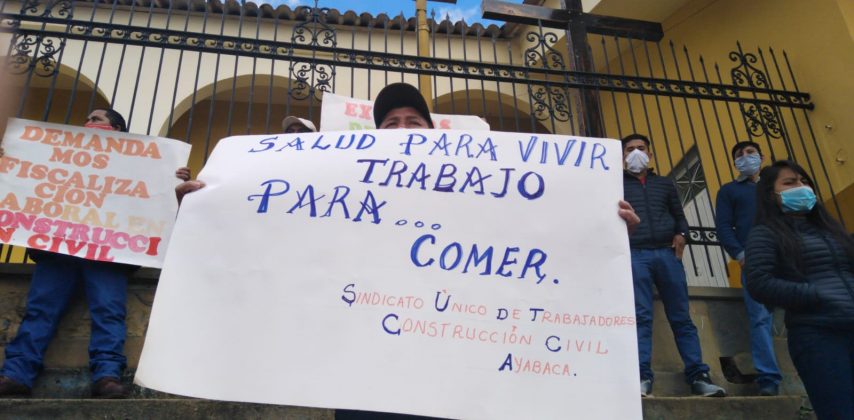 DEMANDA
MOS
FISCALIZA
CIÓN
LABORAL EN
CONSTRUCCI
ÓN CIVIL
SALUD PARA VIVIR
TRABAJO
PARA...
COMER.
SINDICATO ÚNICO DE TRABAJADORES
CONSTRUCCIÓN CIVIL
AYABACA.